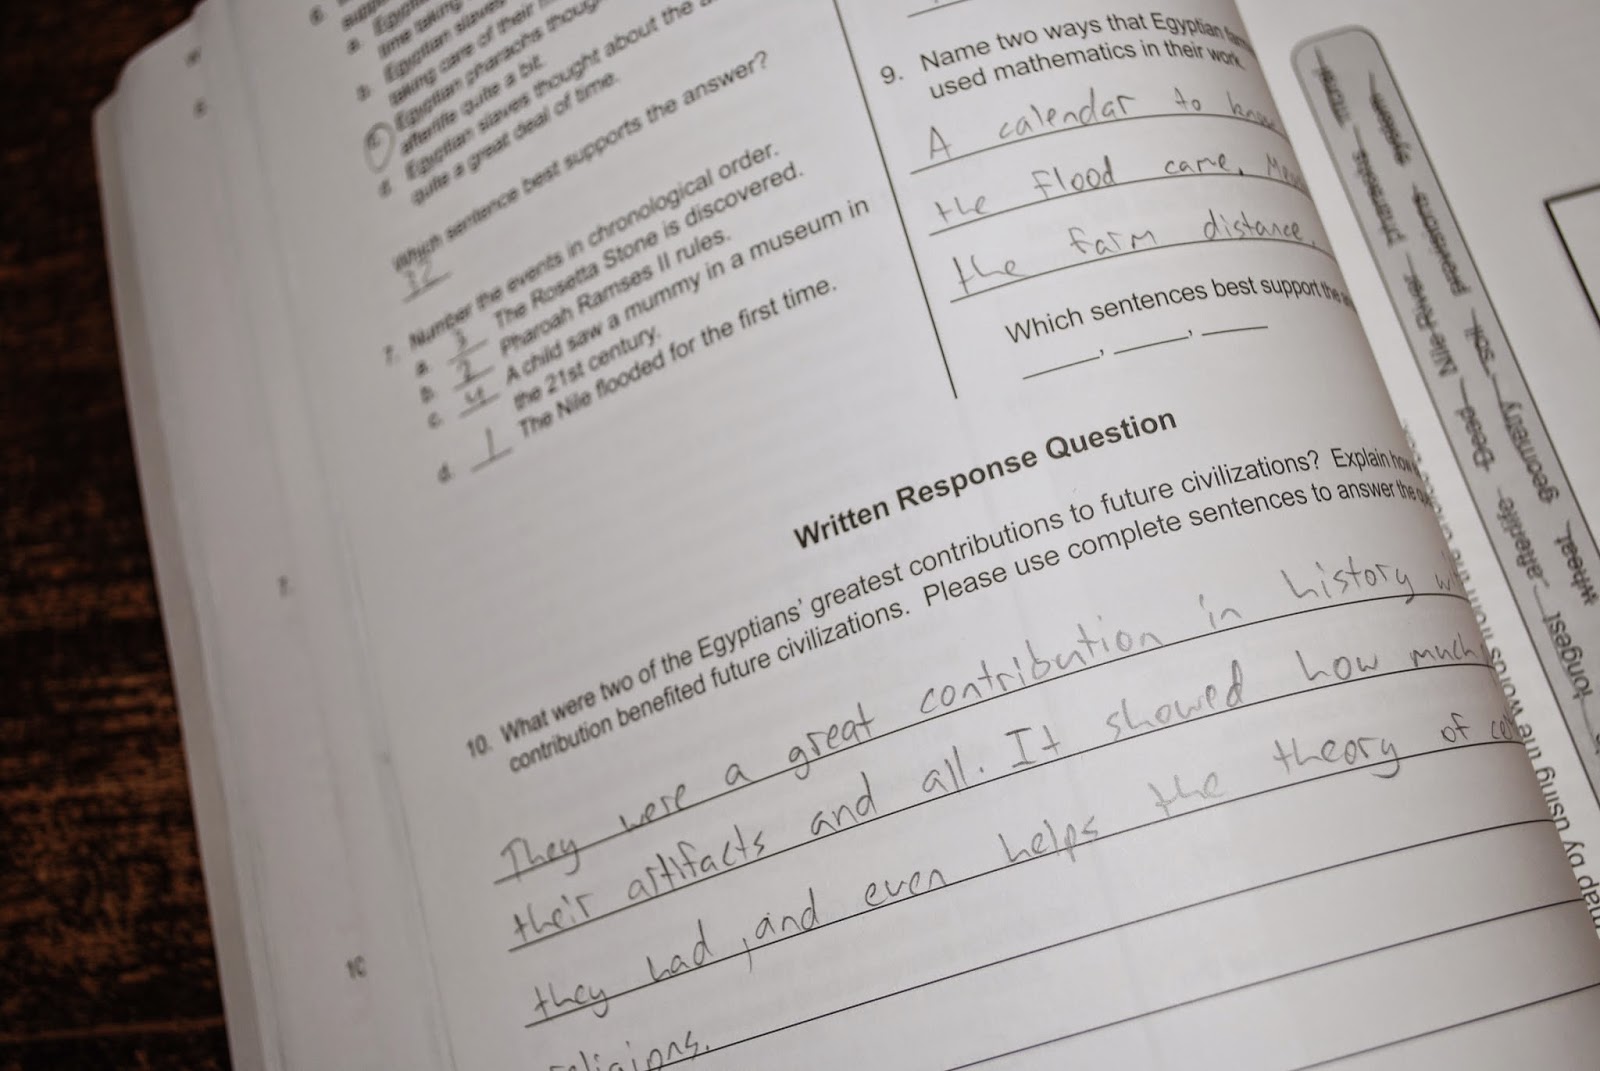 6.
a. Egyptian
time taking
b. Egyptian slaves
taking care of their
c. Egyptian pharaohs thought
afterlife quite a bit.
d. Egyptian slaves thought about the
quite a great deal of time.
Which sentence best supports the answer?
12
7. Number the events in chronological order.
a. 3 The Rosetta Stone is discovered.
b. 2 Pharoah Ramses II rules.
c. 4 A child saw a mummy in a museum in
the 21st century.
d. 1 The Nile flooded for the first time.
9. Name two ways that Egyptian
used mathematics in their work.
A calendar to know
the flood came.
the farm distance.
Which sentences best support the
Written Response Question
10. What were two of the Egyptians' greatest contributions to future civilizations? Explain how
contribution benefited future civilizations. Please use complete sentences to answer the
They were a great contribution in history
their artifacts and all. It showed how much
they had, and even helps the theory of
religions.
pharaohs Nile River Dead afterlife longest
system papyrus soil geometry wheat
map by using the words from the
7.
10